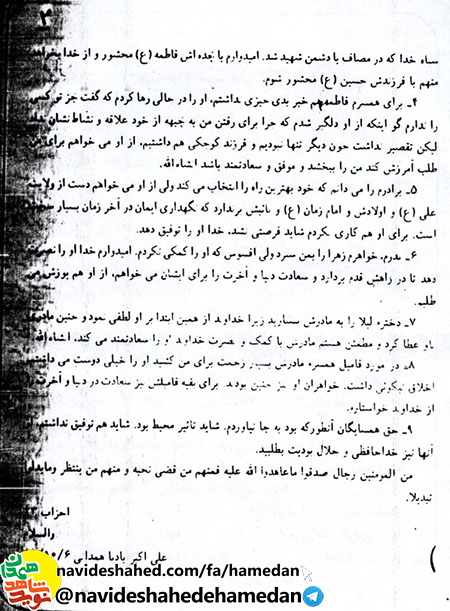 ۲
سپاه خدا که در مصاف با دشمن شهید شد. امیدوارم با جده اش فاطمه (ع) محشور و از خدا
منهم با فرزندش حسین (ع) محشور شوم.
۴ـ برای همسرم فاطمه هم خیر بدی چیزی نداشتم، او را در حالی رها کردم که گفت جز تو کسی
را ندارم گو اینکه از او دلگیر شدم که چرا برای رفتن من به جبهه از خود علاقه و نشاط نشان
لیکن تقصیر نداشت چون دیگر تنها نبودیم و فرزند کوچکی هم داشتیم، از او می خواهم برای من
طلب آمرزش کند من را ببخشد و موفق و سعادتمند باشد انشاءالله.
۵ـ برادرم را می دانم که خود بهترین راه را انتخاب می کند ولی از او می خواهم دست از ولایت
علی (ع) و اولادش و امام زمان (ع) و نائبش برندارد که نگهداری ایمان در آخر زمان بسیار
است. برای او هم کاری نکردم شاید فرصتی نشد، خدا او را توفیق دهد.
۶ـ پدرم، خواهرم زهرا را بمن سپرد ولی افسوس که او را کمکی نکردم. امیدوارم خدا او را نصرت
دهد تا در راهش قدم بردارد و سعادت دنیا و آخرت را برای ایشان می خواهم، از او هم پوزش می
طلبم.
۷ـ دخترم لیلا را به مادرش بسپارید زیرا خداوند از همین ابتدا بر او لطفی نمود و چنین مادری
باو عطا کرد و مطمئن هستم مادرش با کمک و نصرت خداوند او را سعادتمند می کند، انشاءالله.
۸ـ در مورد فامیل همسرم مادرش بسیار زحمت برای من کشید او را خیلی دوست می داشتم
اخلاق نیکوئی داشت. خواهران او نیز چنین بودند. برای بقیه فامیلش نیز سعادت در دنیا و آخرت را
از خداوند خواستارم.
۹ـ حق همسایگان آنطورکه بود به جا نیاوردم. شاید تاثیر محیط بود. شاید هم توفیق نداشتم، از
آنها نیز خداحافظی و حلال بودیت بطلبید.
من المومنین رجال صدقوا ماعاهدوا الله علیه فمنهم من قضی نحبه و منهم من ینتظر ومابدلوا
تبدیلا.
احزاب
والسلام
علی اکبر بادپا همدانی
navideshahed.com/fa/hamedan
@navideshahedehamedan
نوید شاهد